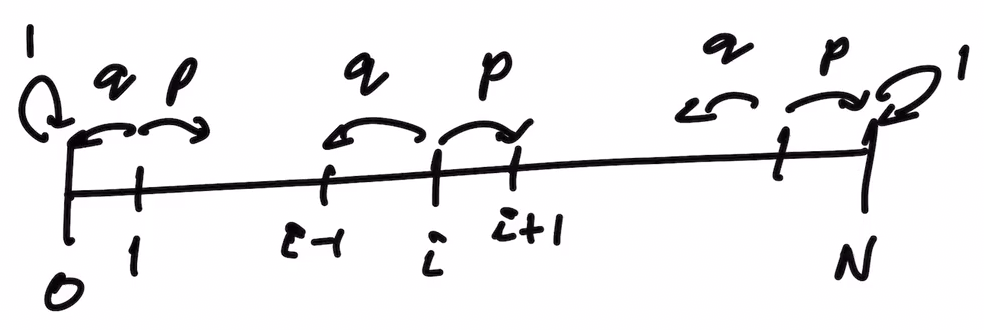 1 q p q p q p 1
0 1 i-1 i i+1 N